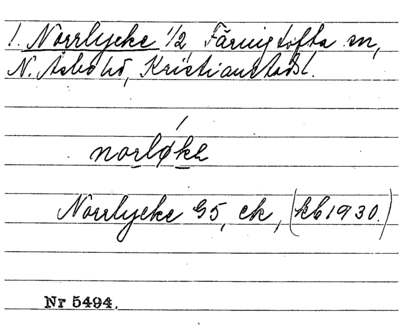 1. Norrlycke 1/2, Färingtofta sn,
N. Åsbo hd, Kristianstads l.
norløkə
Norrlycke G5, ek, (kb 1930.)
Nr 5494.